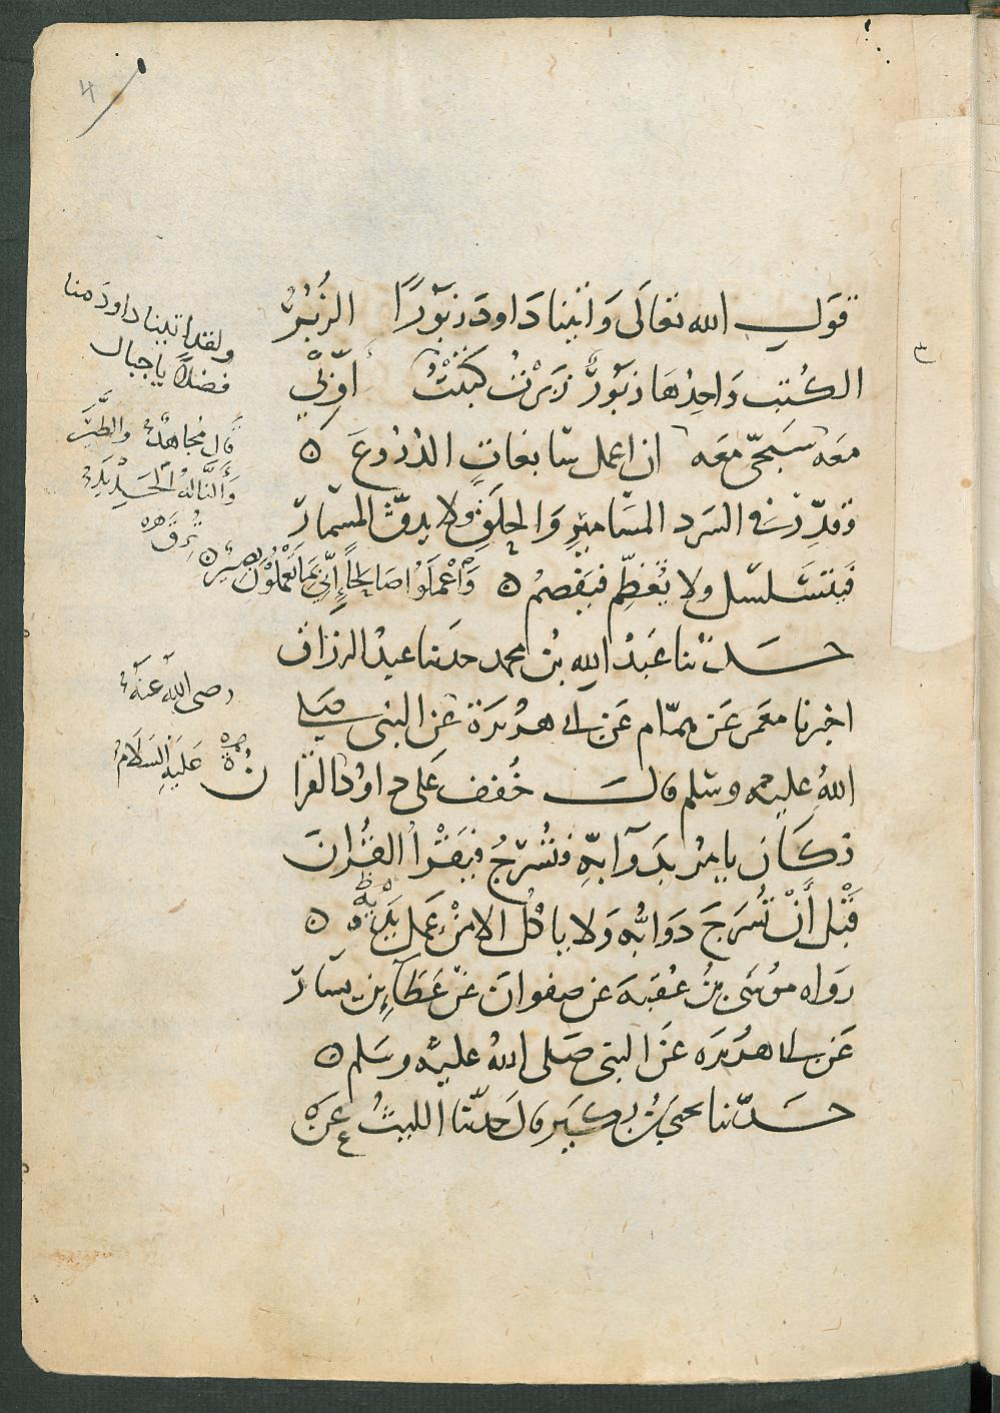 قول الله تعالى وَاتينا دَاودَ زبَورًا الزُبُرُ
الكُتب وَاحِدُهَا زبَورٌ زبَرْتُ كتبْتُ أوِّبي
معَه سَبّحي معَه ان اعمل سَابغاتٍ الدُرُوعَ ه
وقدِّرْ في السَرد المسَامِيرِ وَالحِلَقِ ولا يدقّ المسْمارَ
فيتسَلسَل ولا يُعَظِّم فيَفْصِمُ ه وَاْعْمَلُوا صَالِحًا إِنِّي بِمَا تَعْمَلُوْنَ بَصِيْرٌ ه
حَدّثنا عَبْدُ الله بْن محمد حدثنا عبدُ الرزاق
اخبرنا معمَر عَن همّام عَن ابي هُرَيرَةَ عَن النبي صَلى
اللهُ عليه وسَلم قال خُفف عَلى داوُدَ القرا
ن كَانَ يامُر بدَوآبّهِ فتُسْرَجُ فيَقْرأ القُرانَ
قَبْل أَنْ تُسْرَجَ دَوَابُّه وَلا ياكُل الا مِنْ عَمَل يَدِهِ ه
رَوَاه مُوسَى بنُ عُقبَة عَن صفوانَ عَن عَطَآءِ بن يسَار
عَن ابي هُرَيرَه عَن النبي صَلى اللهُ عليْه وسَلم ه
حَدّثنا يحيَى بْن بُكَيْر قال حَدّثنا الليثُ عَن
ولقد اتينا داودَ منا
فضلًا ياجبال
قال مُجاهدٌ والطَّيْرَ
وَأَلَنَّا لَهُ الْحَدِيْدَ
رضي الله عنهُ
عَلَيْهِ السَلَامُ
٣
4